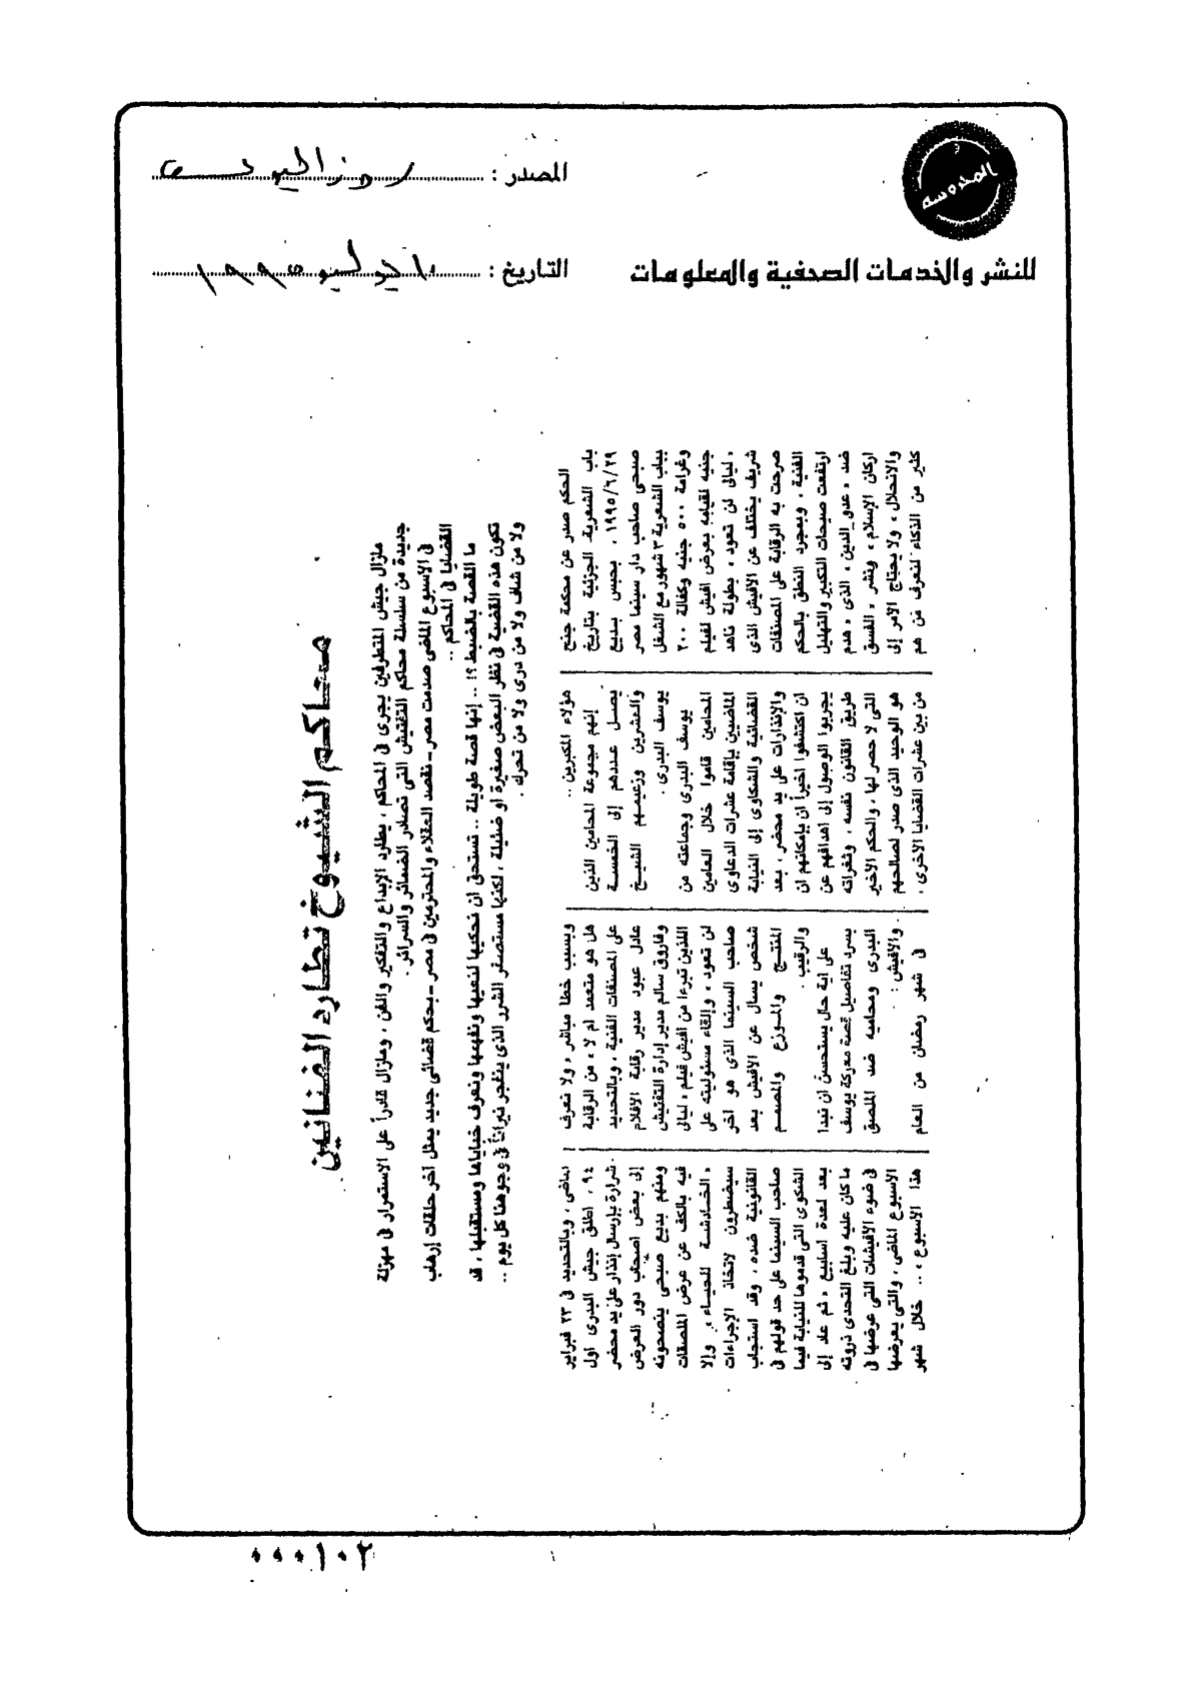 المحروسة
المصدر : روز اليوسف
للنشر والخدمات الصحفية والمعلومات
التاريخ : ١٠ يوليو ١٩٩٥
محاكم الشيوخ تطارد الفنانين
مازال جيش المتطرفين يجرى فى المحاكم ، يطارد الإبداع والتفكير والفن ، ومازال قادراً على الاستمرار فى مهزلة
جديدة من سلسلة محاكم التفتيش التى تصادر الضمائر والسرائر .
فى الاسبوع الماضى صدمت مصر ـ نقصد العقلاء والمحترمين فى مصر ـ بحكم قضائى جديد يمثل آخر حلقات إرهاب
القضايا فى المحاكم ..
ما القصة بالضبط ؟! .. إنها قصة طويلة .. تستحق أن نحكيها لنعيها ونفهمها ونعرف خباياها ومستقبلها ، قد
تكون هذه القضية فى نظر البعض صغيرة أو ضئيلة ، لكنها مستصغر الشرر الذى يتفجر نيراناً فى وجوهنا كل يوم ..
ولا من شاف ولا من درى ولا من تحرك .
الحكم صدر عن محكمة جنح
باب الشعرية الجزئية بتاريخ
١٩٩٥/٦/٢٩ ، بحبس بديع
صبحى صاحب دار سينما مصر
بباب الشعرية ٣ شهور مع الشغل
وغرامة ٥٠٠ جنيه وكفالة ٢٠٠
جنيه لقيامه بعرض افيش لفيلم
« ليالى لن تعود » بطولة ناهد
شريف يختلف عن الافيش الذى
صرحت به الرقابة على المصنفات
الفنية ، وبمجرد النطق بالحكم
ارتفعت صيحات التكبير والتهليل
ضد « عدو الدين » الذى « هدم
اركان الإسلام ، ونشر « الفسق
والانحلال » ولا يحتاج الأمر إلى
كثير من الذكاء لنعرف من هم
هؤلاء المكبرين ..
إنهم مجموعة المحامين الذين
يصل عددهم إلى الخمسة
والعشرين وزعيمهم الشيخ
يوسف البدرى .
يوسف البدرى وجماعته من
المحامين قاموا خلال العامين
الماضيين بإقامة عشرات الدعاوى
القضائية والشكاوى إلى النيابة
والإنذارات على يد محضر ، بعد
أن اكتشفوا أخيراً أن بإمكانهم أن
يجربوا الوصول إلى أهدافهم عن
طريق القانون نفسه ، وثغراته
التى لا حصر لها ، والحكم الأخير
هو الوحيد الذى صدر لصالحهم
من بين عشرات القضايا الأخرى ،
وبسبب خطأ مباشر « ولا نعرف
هل هو متعمد أم لا » من الرقابة
على المصنفات الفنية ، وبالتحديد
عادل عبود مدير رقابة الأفلام
وفاروق سالم مدير إدارة التفتيش
اللذين تبرءا من افيش فيلم « ليالى
لن تعود » وإلقاء مسئوليته على
صاحب السينما الذى هو آخر
شخص يسأل عن الافيش بعد
المنتج والموزع والمصمم
والرقيب .
على أية حال يستحسن أن نبدأ
بسرد تفاصيل قصة معركة يوسف
البدرى ومحاميه ضد الملصق
والأفيش :
فى شهر رمضان من العام
الماضى ، وبالتحديد فى ٢٣ فبراير
٩٤ ، أطلق جيش البدرى أول
شرارة بإرسال إنذار على يد محضر
إلى بعض أصحاب دور العرض
ومنهم بديع صبحى ينصحونه
فيه بالكف عن عرض الملصقات
« الخادشة للحياء » وإلا
سيضطرون لاتخاذ الإجراءات
القانونية ضده ، وقد استجاب
صاحب السينما على حد قولهم فى
الشكوى التى قدموها للنيابة فيما
بعد لعدة أسابيع « ثم عاد إلى
ما كان عليه وبلغ التحدى ذروته
فى ضوء الأفيشات التى عرضها فى
الأسبوع الماضى ، والتى يعرضها
هذا الأسبوع » .. خلال شهر
٠٠٠١٠٢